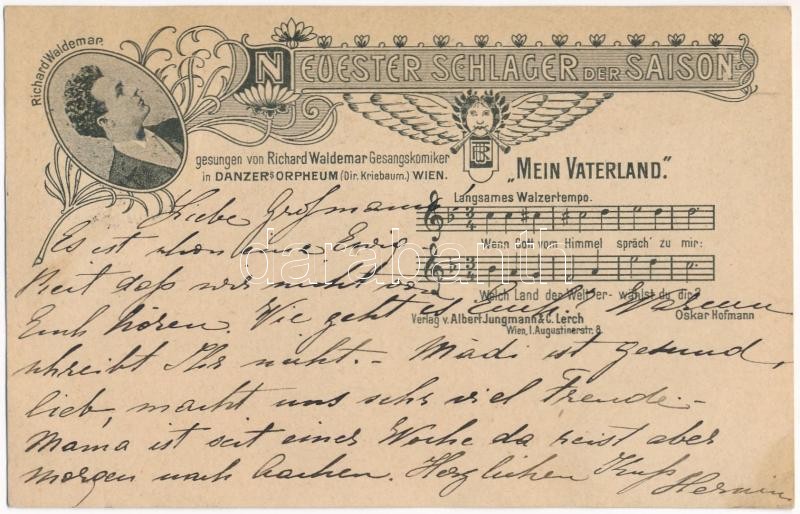 Richard Waldemar.
NEUESTER SCHLAGER DER SAISON
gesungen von Richard Waldemar Gesangskomiker
in DANZERS ORPHEUM (Dir. Kriebaum.) WIEN.
„MEIN VATERLAND."
Langsames Walzertempo.
Wenn Gott vom Himmel spräch' zu mir:
Welch Land der Welt er- wählst du dir?
Oskar Hofmann
Verlag v. Albert Jungmann & C. Lerch
Wien, I. Augustinerstr. 8.
Liebe Großmama!
Es ist schon eine Ewig-
keit daß wir nicht von
Euch hören. Wie geht es Euch? Warum
schreibt Ihr nicht.- Mädi ist gesund,
lieb, macht uns sehr viel Freude.-
Mama ist seit einer Woche da reist aber
morgen nach Aachen. Herzlichen Kuß
darabanth